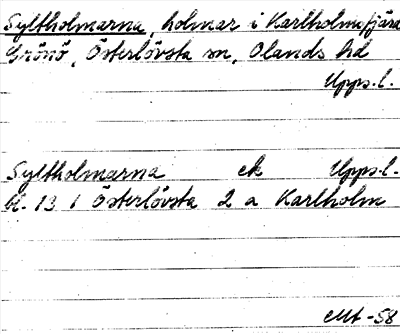 Syltholmarna, holmar i Karlholmsfjärd
Grönö, Österlövsta sn, Olands hd
Upps.l.
Syltholmarna ek Upps.l.
Bl. 13 I Österlövsta 2 a Karlholm
-58